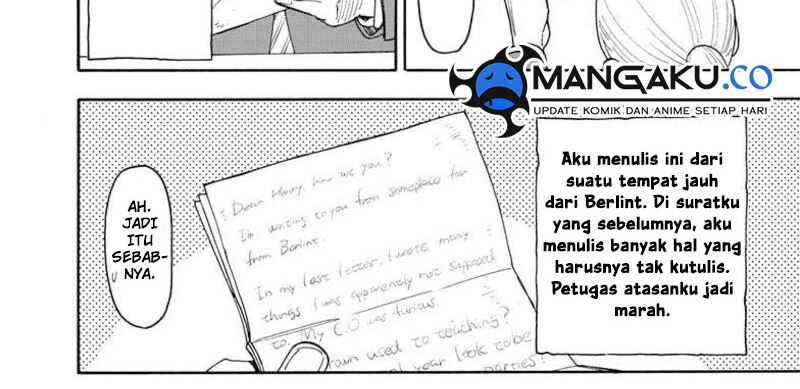 MANGAKU.CO
UPDATE KOMIK DAN ANIME SETIAP HARI
AH.
JADI
ITU
SEBAB-
NYA.
Dear Henry, how are you?
I'm writing to you from someplace far
from Berlint.
In my last letter, I wrote many
things I was apparently not supposed
to. My C.O was furious.
used to teaching?
year look to be
parties?
Aku menulis ini dari
suatu tempat jauh
dari Berlint. Di suratku
yang sebelumnya, aku
menulis banyak hal yang
harusnya tak kutulis.
Petugas atasanku jadi
marah.